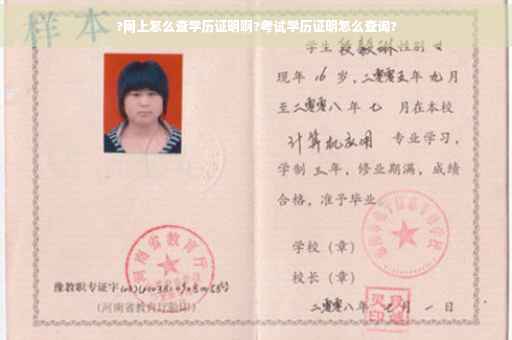 ?网上怎么查学历证明啊?考试学历证明怎么查询?
样本
学生 段毅琳 性别 女
现年 16 岁，二零零五年 九 月
至二零零八 年 七 月在本校
计算机应用 专业学习，
学制 三 年，修业期满，成绩
合格，准予毕业
学校（章）
校长（章）
二零零八年 七 月 一 日
河南省教育厅
豫教职专证字
(河南省教育厅验印)